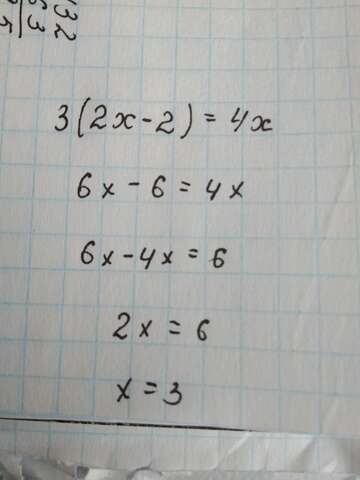 3(2x-2)=4x
6x-6=4x
6x-4x=6
2x=6
x=3